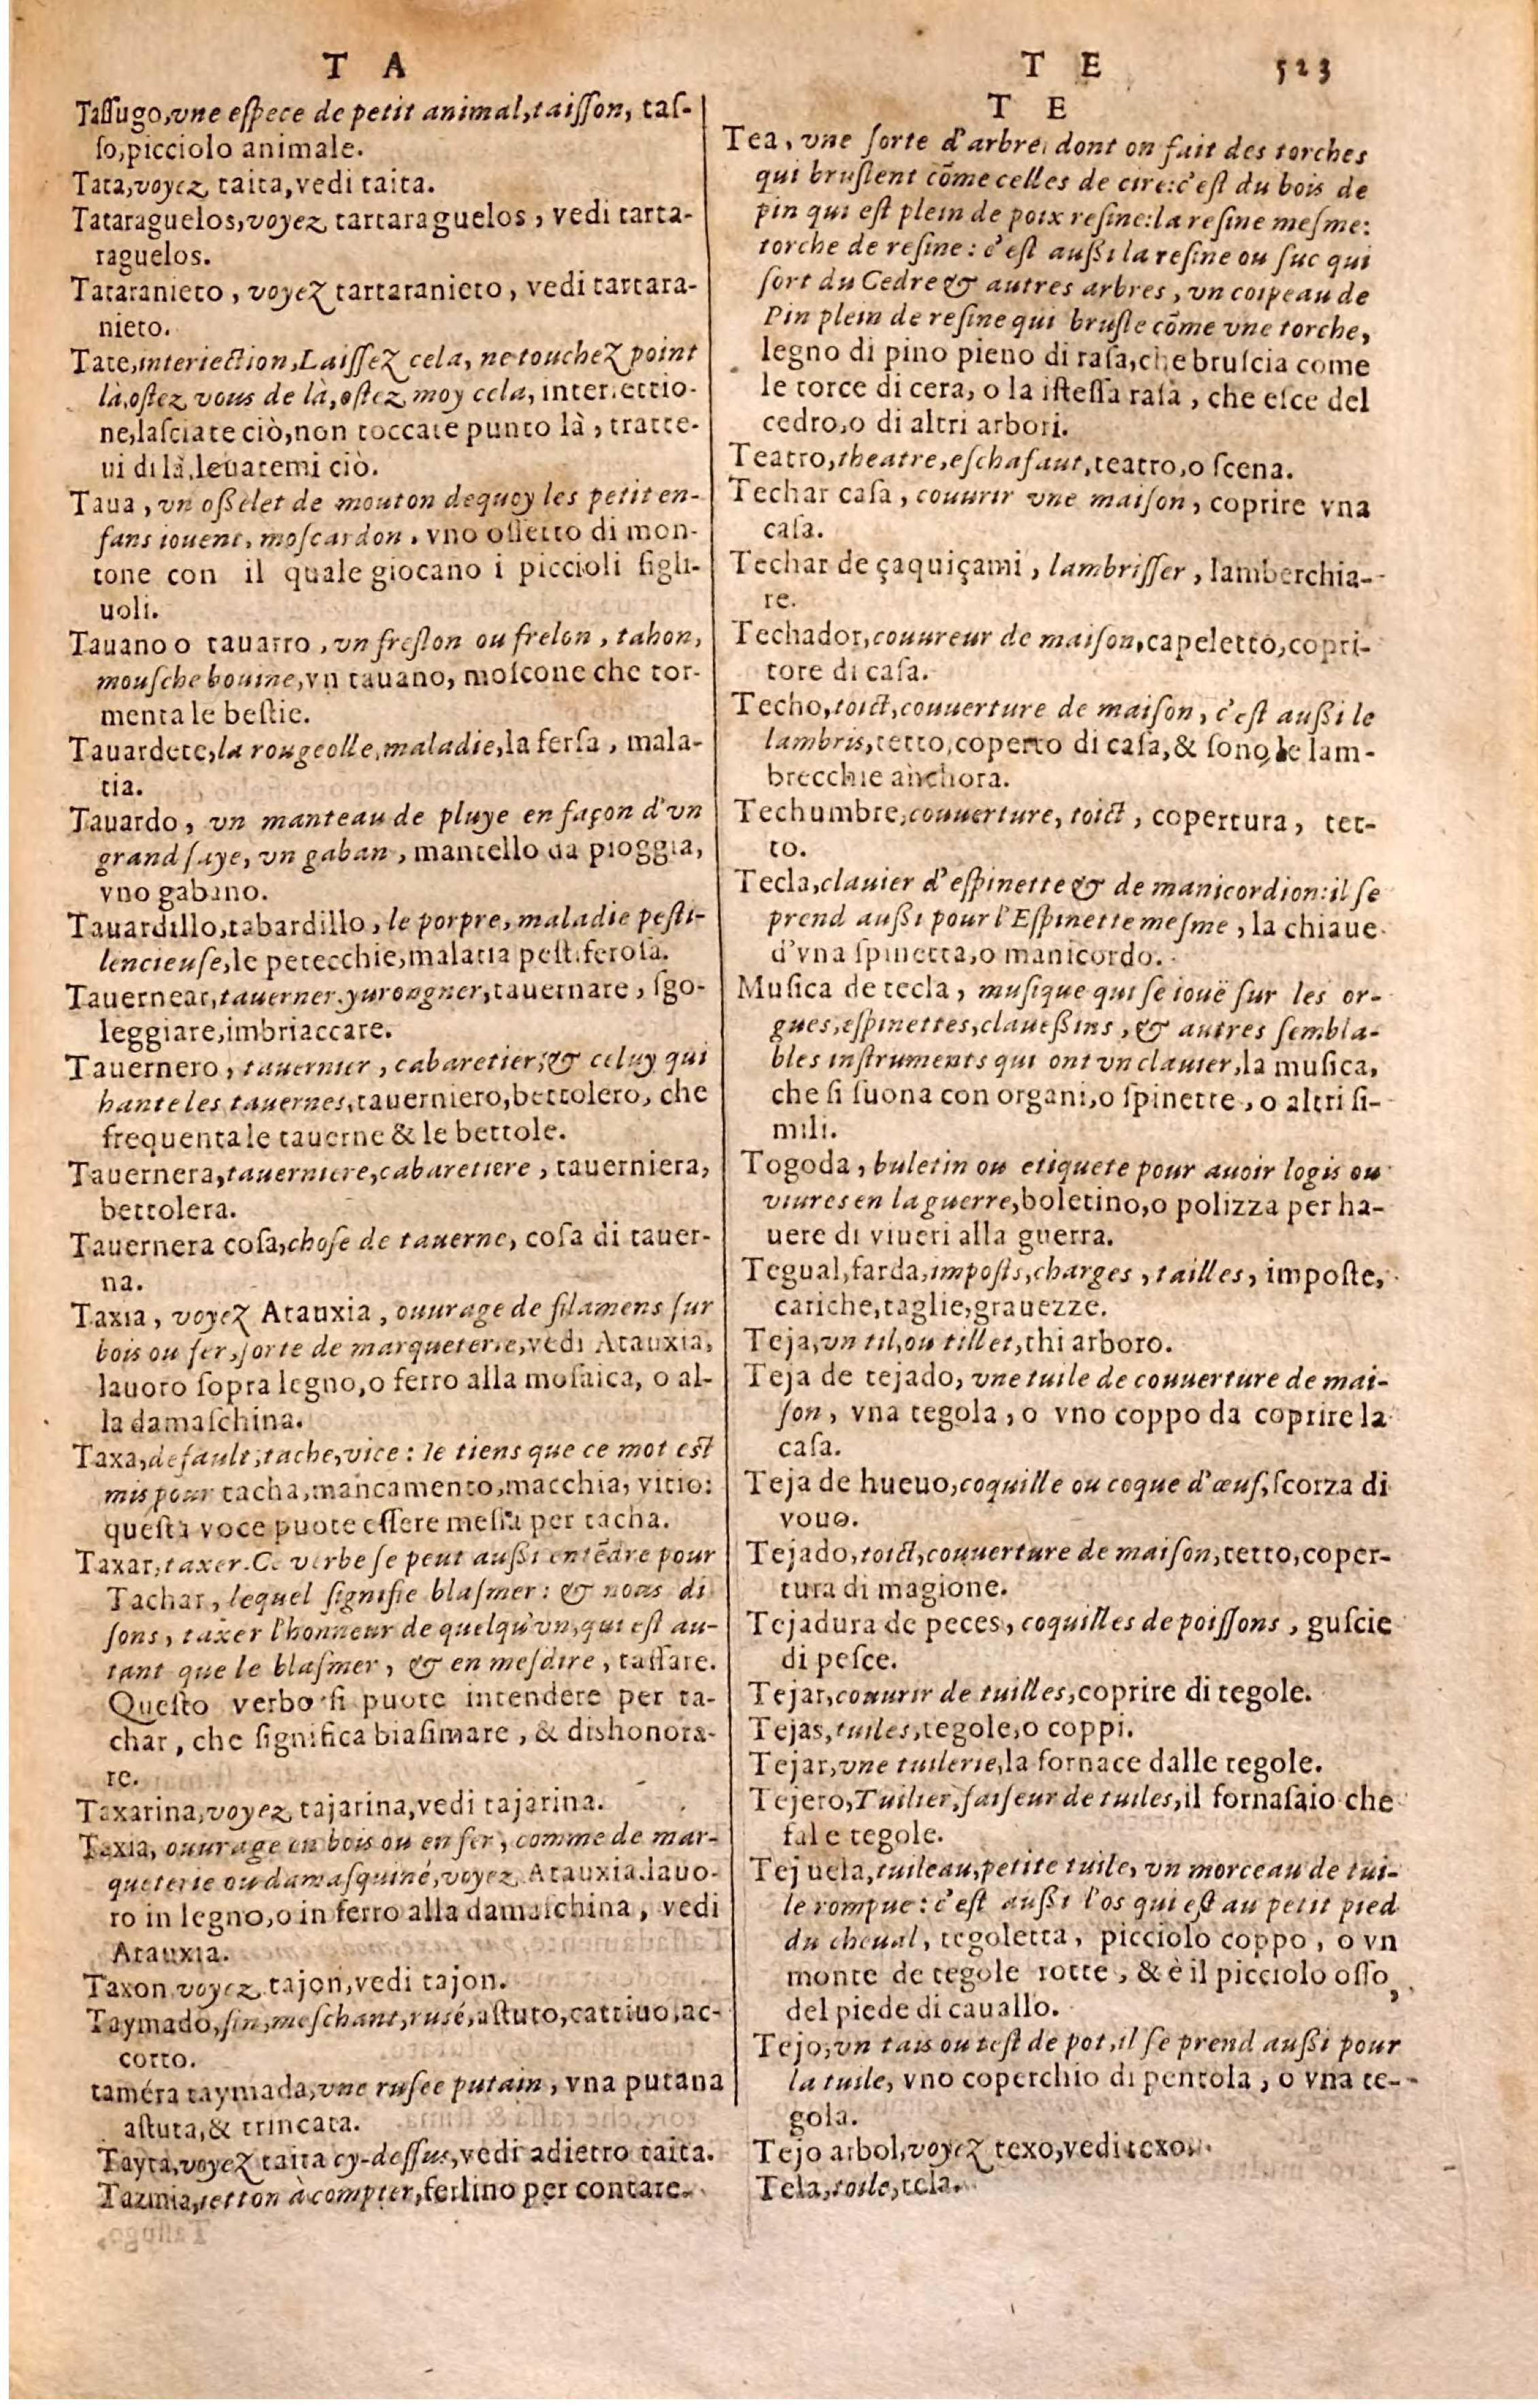 T A
Tassugo, vne espece de petit animal, taisson, tas-
so, picciolo animale.
Tata, voyez taita, vedi taita.
Tataraguelos, voyez tartaraguelos, vedi tarta-
raguelos.
Tataranieto, voyez tartaranieto, vedi tartara-
nieto.
Tate, interiection, Laissez cela, ne touchez point
là, ostez vous de là, ostez moy cela, interiettio-
ne, lasciate ciò, non toccate punto là, tratte-
ui di là, leuatemi ciò.
Taua, vn osselet de mouton dequoy les petit en-
fans iouent, moscardon, vno ossetto di mon-
tone con il quale giocano i piccioli figli-
uoli.
Tauano o tauarro, vn freslon ou frelon, tahon,
mousche bouine, vn tauano, moscone che tor-
menta le bestie.
Tauardete, la rougeolle, maladie, la fersa, mala-
tia.
Tauardo, vn manteau de pluye en façon d'vn
grand saye, vn gaban, mantello da pioggia,
vno gabano.
Tauardillo, tabardillo, le porpre, maladie pesti-
lencieuse, le petecchie, malatia pestiferosa.
Tauernear, tauerner, yurongner, tauernare, sgo-
leggiare, imbriaccare.
Tauernero, tauernier, cabaretier, & celuy qui
hante les tauernes, tauerniero, bettolero, che
frequenta le tauerne & le bettole.
Tauernera, tauerniere, cabaretiere, tauerniera,
bettolera.
Tauernera cosa, chose de tauerne, cosa di tauer-
na.
Taxia, voyez Atauxia, ouurage de filamens sur
bois ou fer, sorte de marqueterie, vedi Atauxia,
lauoro sopra legno, o ferro alla mosaica, o al-
la damaschina.
Taxa, default, tache, vice: Ie tiens que ce mot est
mis pour tacha, mancamento, macchia, vitio:
questa voce puote essere messa per tacha.
Taxar, taxer. Ce verbe se peut aussi entēdre pour
Tachar, lequel signifie blasmer: & nous di
sons, taxer l'honneur de quelqu'vn, qui est au-
tant que le blasmer, & en mesdire, tassare.
Questo verbo si puote intendere per ta-
char, che significa biasimare, & dishonora-
re.
Taxarina, voyez tajarina, vedi tajarina.
Taxia, ouurage en bois ou en fer, comme de mar-
queterie ou damasquiné, voyez Atauxia. lauo-
ro in legno, o in ferro alla damaschina, vedi
Atauxia.
Taxon voyez tajon, vedi tajon.
Taymado, fin, meschant, rusé, astuto, cattiuo, ac-
corto.
taméra taymada, vne rusee putain, vna putana
astuta, & trincata.
Tayta, voyez taita cy-dessus, vedi adietro taita.
Tazmia, ietton à compter, ferlino per contare.
T E 523
T E
Tea, vne sorte d'arbre, dont on fait des torches
qui bruslent cōme celles de cire: c'est du bois de
pin qui est plein de poix resine: la resine mesme:
torche de resine: c'est aussi la resine ou suc qui
sort du Cedre & autres arbres, vn coipeau de
Pin plein de resine qui brusle cōme vne torche,
legno di pino pieno di rasa, che bruscia come
le torce di cera, o la istessa rasa, che esce del
cedro, o di altri arbori.
Teatro, theatre, eschafaut, teatro, o scena.
Techar casa, couurir vne maison, coprire vna
casa.
Techar de çaquiçami, lambrisser, lamberchia-
re.
Techador, couureur de maison, capeletto, copri-
tore di casa.
Techo, toict, couuerture de maison, c'est aussi le
lambris, tetto, coperto di casa, & sono le lam-
brecchie anchora.
Techumbre, couuerture, toict, copertura, tet-
to.
Tecla, clauier d'espinette & de manicordion: il se
prend aussi pour l'Espinette mesme, la chiaue
d'vna spinetta, o manicordo.
Musica de tecla, musique qui se iouë sur les or-
gues, espinettes, clauessins, & autres sembla-
bles instruments qui ont vn clauier, la musica,
che si suona con organi, o spinette, o altri si-
mili.
Togoda, buletin ou etiquete pour auoir logis ou
viures en la guerre, boletino, o polizza per ha-
uere di viueri alla guerra.
Tegual, farda, imposts, charges, tailles, imposte,
cariche, taglie, grauezze.
Teja, vn til, ou tillet, thi arboro.
Teja de tejado, vne tuile de couuerture de mai-
son, vna tegola, o vno coppo da coprire la
casa.
Teja de hueuo, coquille ou coque d'œuf, scorza di
vouo.
Tejado, toict, couuerture de maison, tetto, coper-
tura di magione.
Tejadura de peces, coquilles de poissons, guscie
di pesce.
Tejar, couurir de tuilles, coprire di tegole.
Tejas, tuiles, tegole, o coppi.
Tejar, vne tuilerie, la fornace dalle tegole.
Tejero, Tuilier, faiseur de tuiles, il fornasaio che
fal e tegole.
Tej uela, tuileau, petite tuile, vn morceau de tui-
le rompue: c'est aussi l'os qui est au petit pied
du cheual, tegoletta, picciolo coppo, o vn
monte de tegole rotte, & è il picciolo osso
del piede di cauallo.
Tejo, vn tais ou test de pot, il se prend aussi pour
la tuile, vno coperchio di pentola, o vna te-
gola.
Tejo arbol, voyez texo, vedi texo.
Tela, toile, tela.